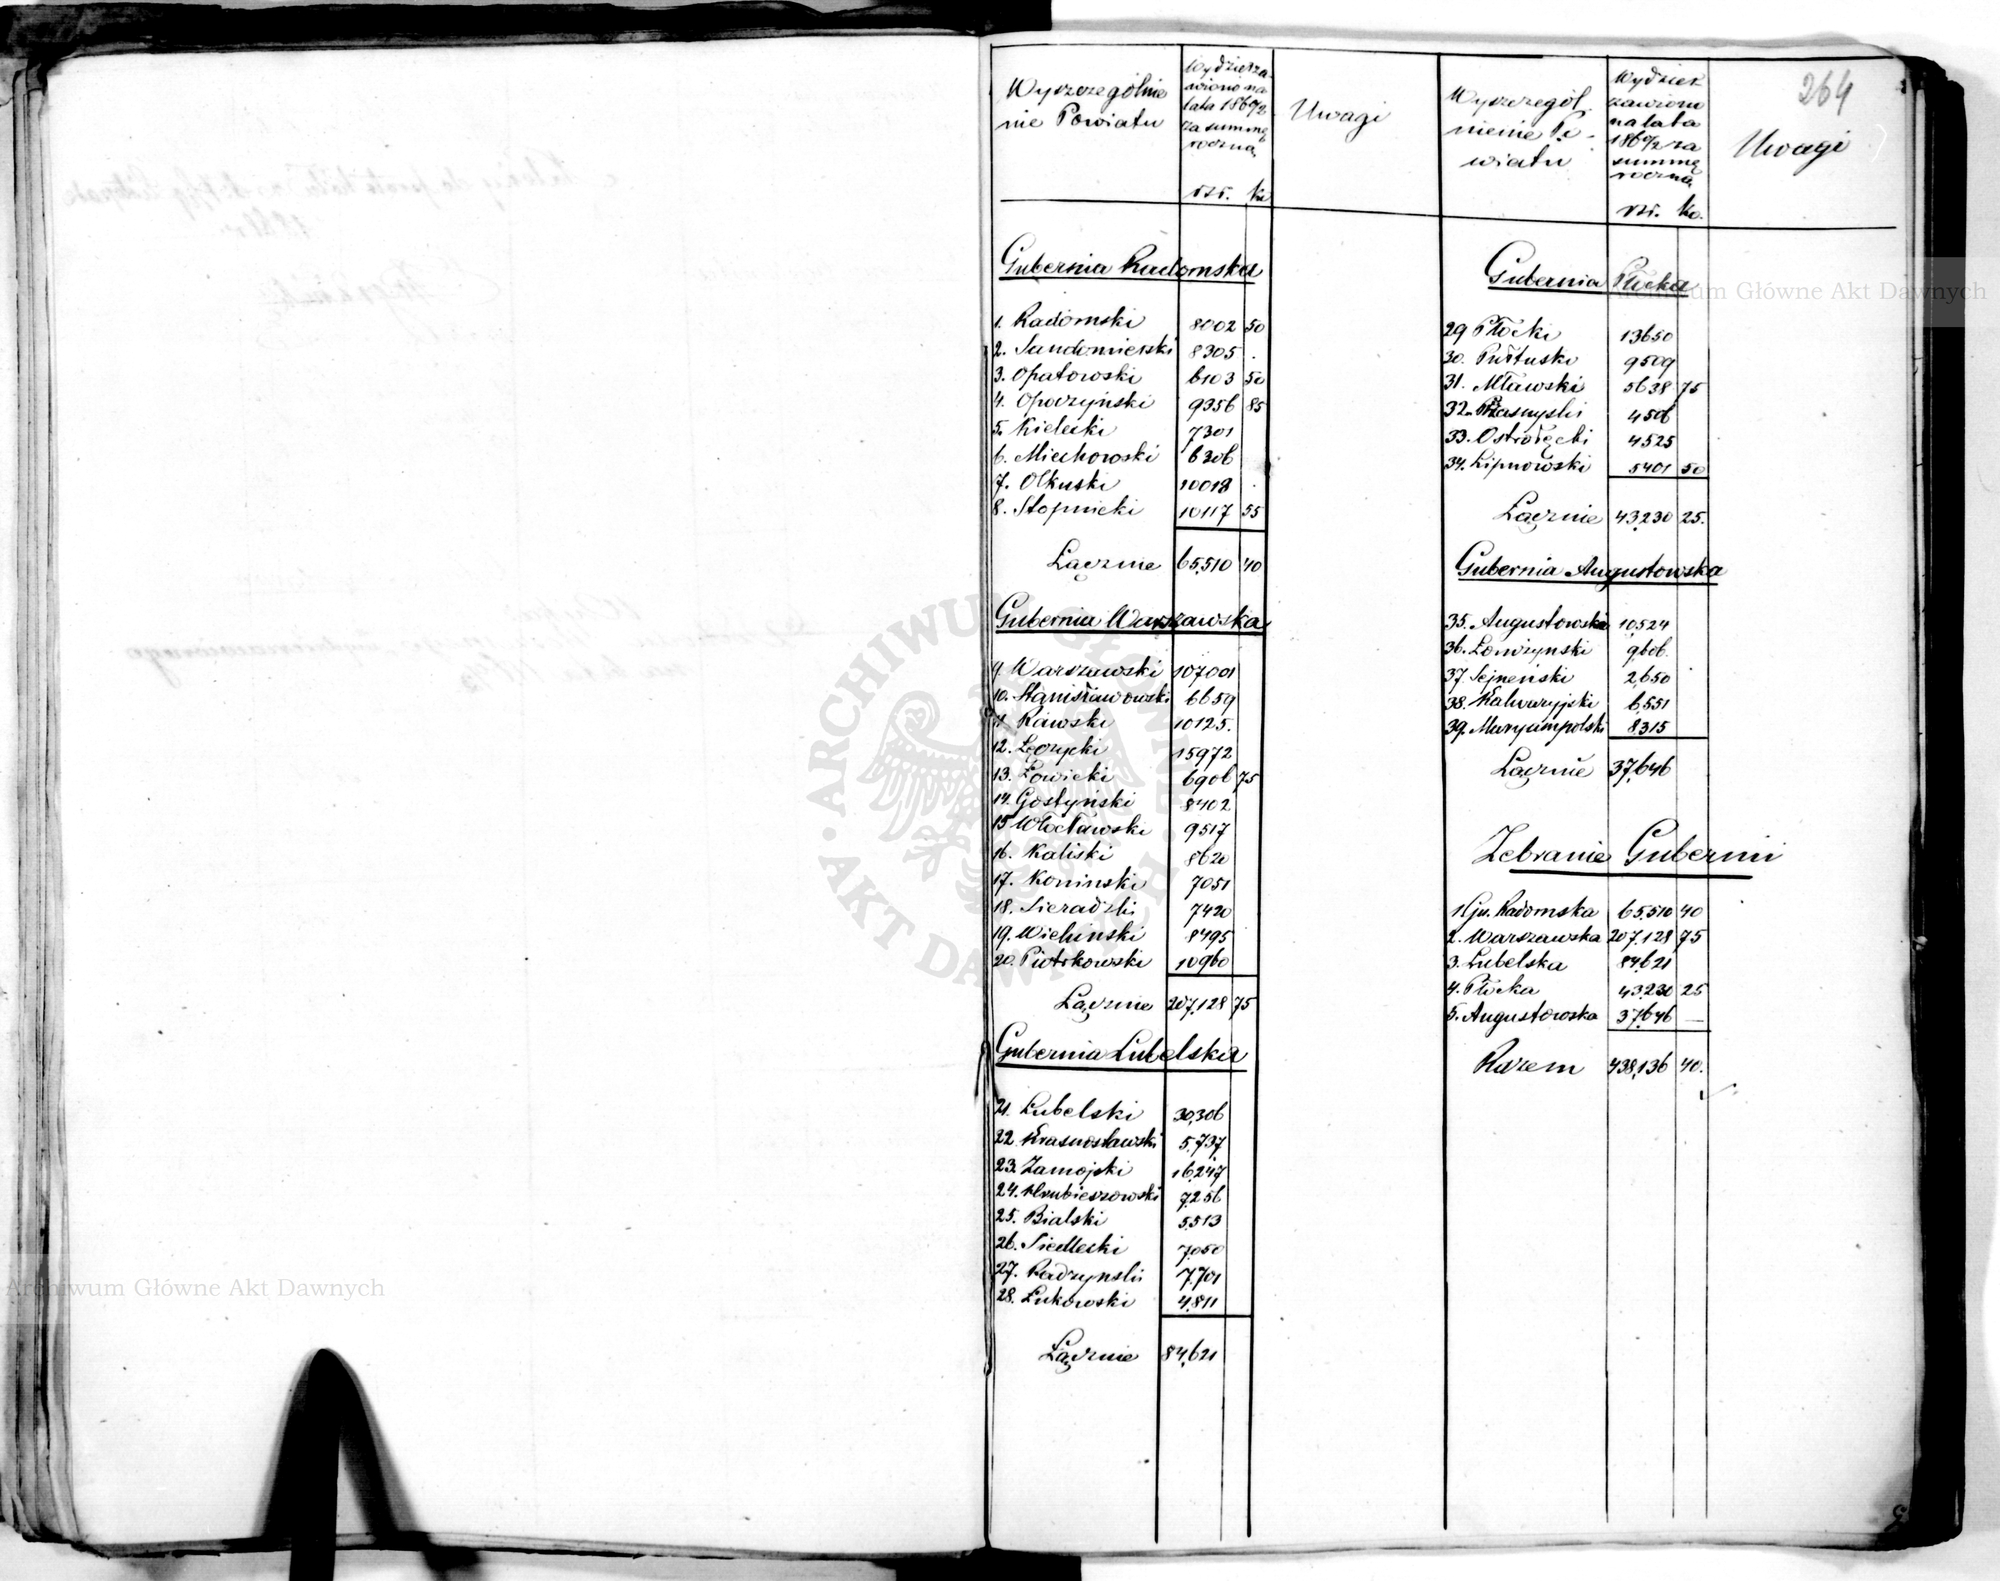 264
Wyszczególnie
nie Powiatu
Wydzierża-
wiono na
lata 1860/2
za summę
roczną
rsr. ko
Uwagi
Gubernia Radomska
1. Radomski 8002 50
2. Sandomierski 8305 .
3. Opatowski 6103 50
4. Opoczyński 9356 85
5. Kielecki 7301
6. Miechowski 6306
7. Olkuski 10018
8. Stopnicki 10117 55
Łącznie 65,510 40
Gubernia Warszawska
9. Warszawski 107001
10. Stanisławowski 6659
11 Rawski 10125.
12. Łęczycki 15972
13. Łowicki 6906 75
14. Gostyński 8402
15 Włocławski 9517
16. Kaliski 8620
17. Koninski 7051
18. Sieradzki 7420
19. Wieluński 8495
20. Piotrkowski 10960
Łącznie 207,128 75
Gubernia Lubelska
21. Lubelski 30,306
22 Krasnostawski 5,737
23. Zamojski 16,247
24. Hrubieszowski 7,256
25. Bialski 5,513
26. Siedlecki 7,050
27. Radzynski 7,701
28. Łukowski 4,811
Łącznie 84,621
Wyszczegól-
nienie Po-
wiatu
Wydzier
żawiono
na lata
1860/2 za
summę
roczną
rsr. Ko.
Uwagi
Gubernia Płocka
29 Płocki 13650
30. Pułtuski 9509
31. Mławski 5638 75
32. Przasnyski 4506
33. Ostrołęcki 4525
34. Lipnowski 5401 50
Łącznie 43,230 25.
Gubernia Augustowska
35. Augustowski 10,524
36. Łomżynski 9,606.
37. Sejneński 2,650
38. Kalwaryjski 6,551
39. Maryampolski 8,315
Łącznie 37,646
Zebranie Gubernii
1. Gu. Radomska 65,510 40
2. Warszawska 207,128 75
3. Lubelska 84,621
4. Płocka 43,230 25
5. Augustowska 37,646 —
Razem 438,136 40.
Archiwum Główne Akt Dawnych
Archiwum Główne Akt Dawnych
ARCHIWUM GŁÓWNE AKT DAWNYCH